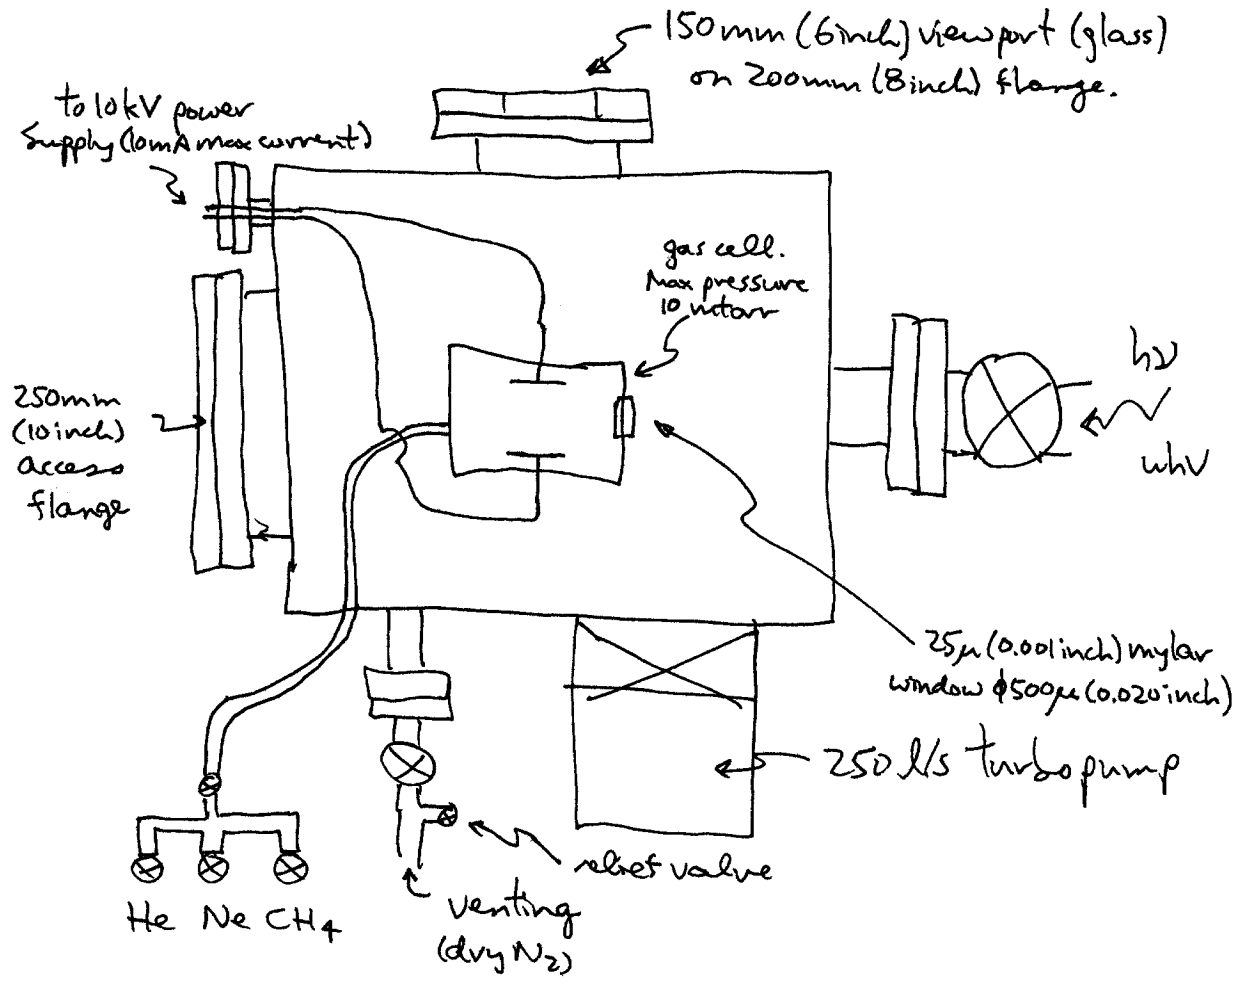 150mm (6inch) viewport (glass)
on 200mm (8inch) flange.
to 10kV power
supply (10mA max current)
gas cell.
Max pressure
10 mtorr
hν
whν
250mm
(10inch)
access
flange
25μ (0.001inch) mylar
window ϕ500μ (0.020inch)
250 l/s turbopump
relief valve
venting
(dry N2)
He Ne CH4